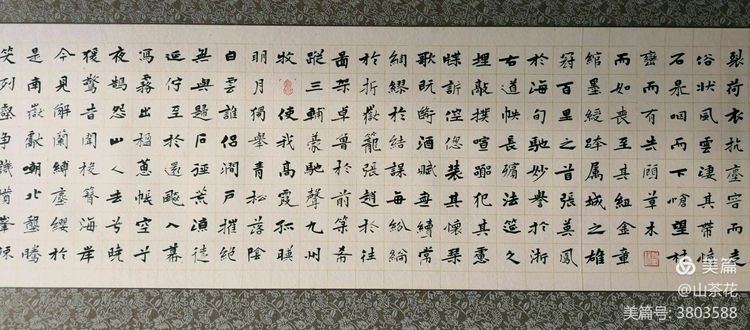 裂荷衣抗塵容而走
俗狀風雲凄其帶憤
石泉咽而下愴望林
巒而有失顧草木
而如喪至其紐金章
綰墨綬跨属城之雄
冠百里之首張英風
於海甸馳妙譽於浙
右道帙長殯法筵久
埋敲撲喧囂犯其慮
牒訴倥偬裝其懷琴
歌既斷酒賦無續常
綢繆於結課每紛綸
於折獄籠張趙於往
圖架卓魯於前籙希
蹤三輔豪馳聲九州
牧使我高霞孤映
明月獨舉青松落陰
白雲誰侣澗戶摧絕
無與歸石徑荒涼徒
延佇至於還飈入幕
瀉霧出楹蕙帳空兮
夜鶴怨山人去兮曉
猨驚昔聞投簪海岸
今見解蘭縛塵纓於
是南嶽獻嘲北壟騰
笑列壑爭譏攢峯竦
美篇
@山茶花
美篇号: 3803588